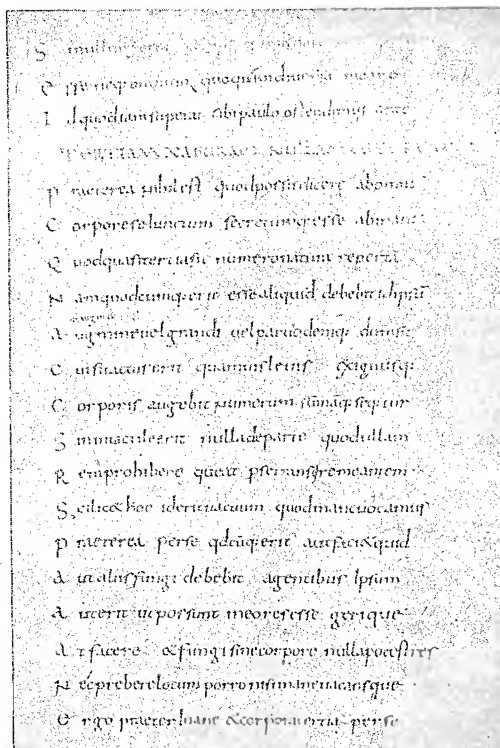 S i nulla foret
E sse neq omnino quoquam diuersa meare
I d quod iam supera tibi paulo ostendimus ante
TERTIAM NATURAM NULLAM
P raeterea nihil est quod possis dicere ab omni
C orpore seiunctum secretumq; esse ab inani
Q uod quasi tertia sit numero natura reperta
N am quodcumq; erit esse aliquid debebit id ipsū
A ugmine uel grandi uel paruo deniq; dum sit
C ui si tactus erit quamuis leuis exiguisq;
C orporis augebit numerum sūmaq; sequitur
S inmaculeerit nulla de parte quod ullam
R em prohibere queat p se transire meantem
S cilicet hoc id erit uacuum quod inane uocamus
P raeterea per se qdcūq; erit aut faciet quid
A ut aliis fungi debebit agentibus ipsum
A ut erit ut possunt in eo res esse gerique
A t facere & fungi sine corpore nulla potest res
N ec prebere locum porro nisi inane uacansque
E rgo praeter inane & corpora tertia per se